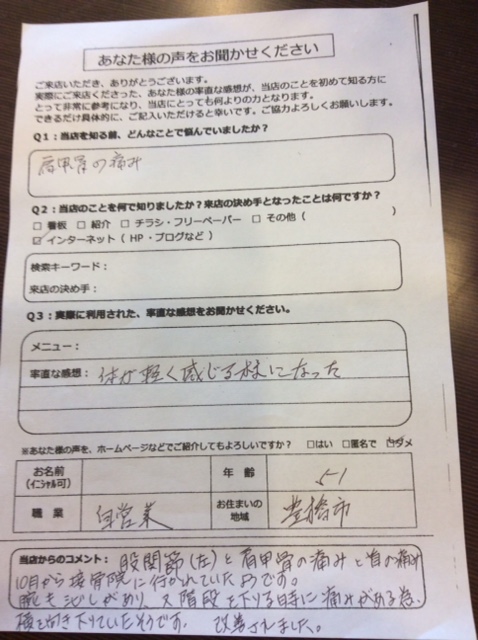 あなた様の声をお聞かせください
ご来店いただき、ありがとうございます。
実際にご来店くださった、あなた様の率直な感想が、当店のことを初めて知る方に
とって非常に参考になり、当店にとっても何よりの力となります。
できるだけ具体的に、ご記入いただけると幸いです。ご協力よろしくお願いします。
Q1:当店を知る前、どんなことで悩んでいましたか?
肩甲骨の痛み
Q2:当店のことを何で知りましたか?来店の決め手となったことは何ですか?
□ 看板 □ 紹介 □ チラシ・フリーペーパー □ その他( )
☑ インターネット(HP・ブログなど)
検索キーワード:
来店の決め手:
Q3:実際に利用された、率直な感想をお聞かせください。
メニュー:
率直な感想: 体が軽く感じる様になった
※あなた様の声を、ホームページなどでご紹介してもよろしいですか? □はい □匿名で ☑ダメ
お名前 年齢 51
(イニシャル可)
職業 自営業 お住まいの地域 豊橋市
当店からのコメント: 股関節(左)と肩甲骨の痛みと首の痛み
10月から接骨院に行かれていた方です。
腕もしびれがあり、又階段を下りる時に痛みがある為、
横を向き下りていたそうです。 改善されました。